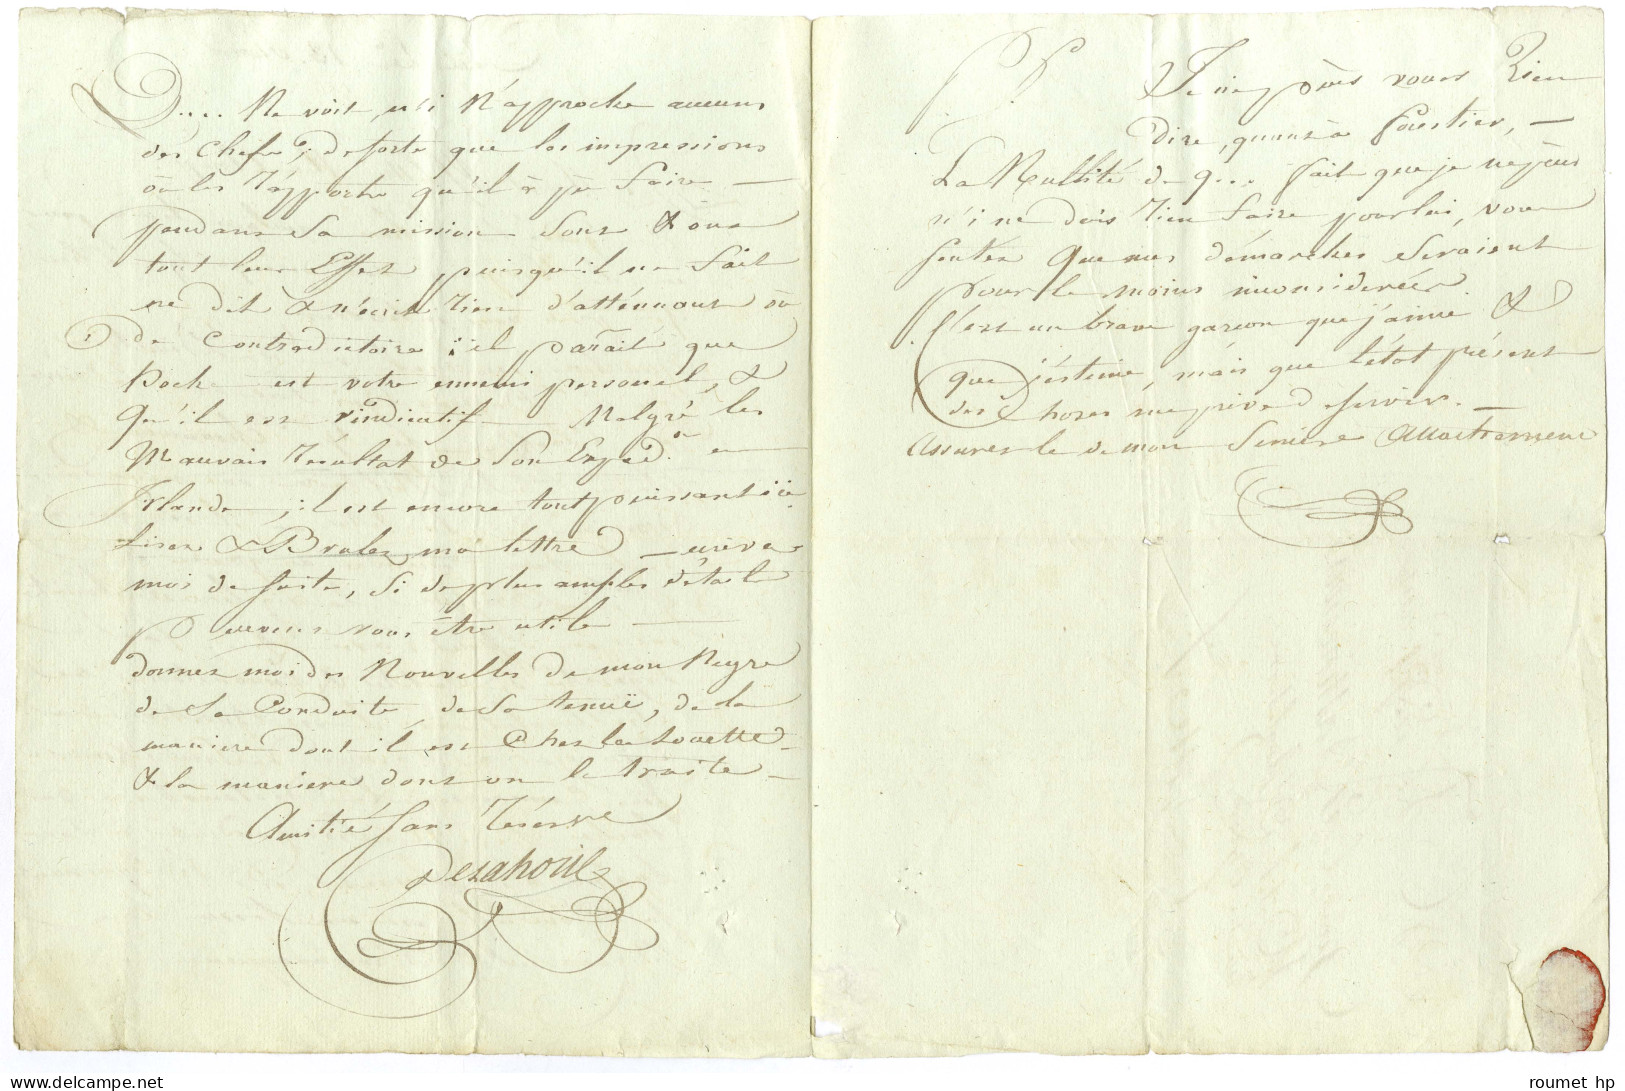 D.... Ne voit n'i N'approche aucuns
des Chefs; de sorte que les impressions
où les rapports qu'il à pu faire —
pendans sa mission sont & ont
tout leur Effet, puisqu'il ne fait
ne dit & n'écrit rien d'atténuant où
de Contradictoire; il parait que
Hoche est votre ennemi personel, &
qu'il est vindicatif Malgré les
Mauvais résultat de Son Exped.on en —
Irlande, il est encore tout puissant ici.
Lisez & Brulez ma lettre — écrivez
moi de suite, si de plus amples détails
peuvent vous être utile —
donnez moi des Nouvelles de mon Negre
de Sa Conduite, de Sa tenuë, de la
maniere dont il est Chez la
& la maniere dont on le traite —
Amitié Sans réserve
P.S. Je ne puis vous rien
dire, quant à —
La Nullité de q... fait que je ne puis
n'i ne dois rien faire pour lui, vous
sentez que mes démarches seraient
pour le moins inconsiderées.
C'est un brave garcon que j'aime &
que j'estime, mais que l'état présent
des Choses me prive de servir. —
Assurez le de mon Sincère Attachement
roumet hp